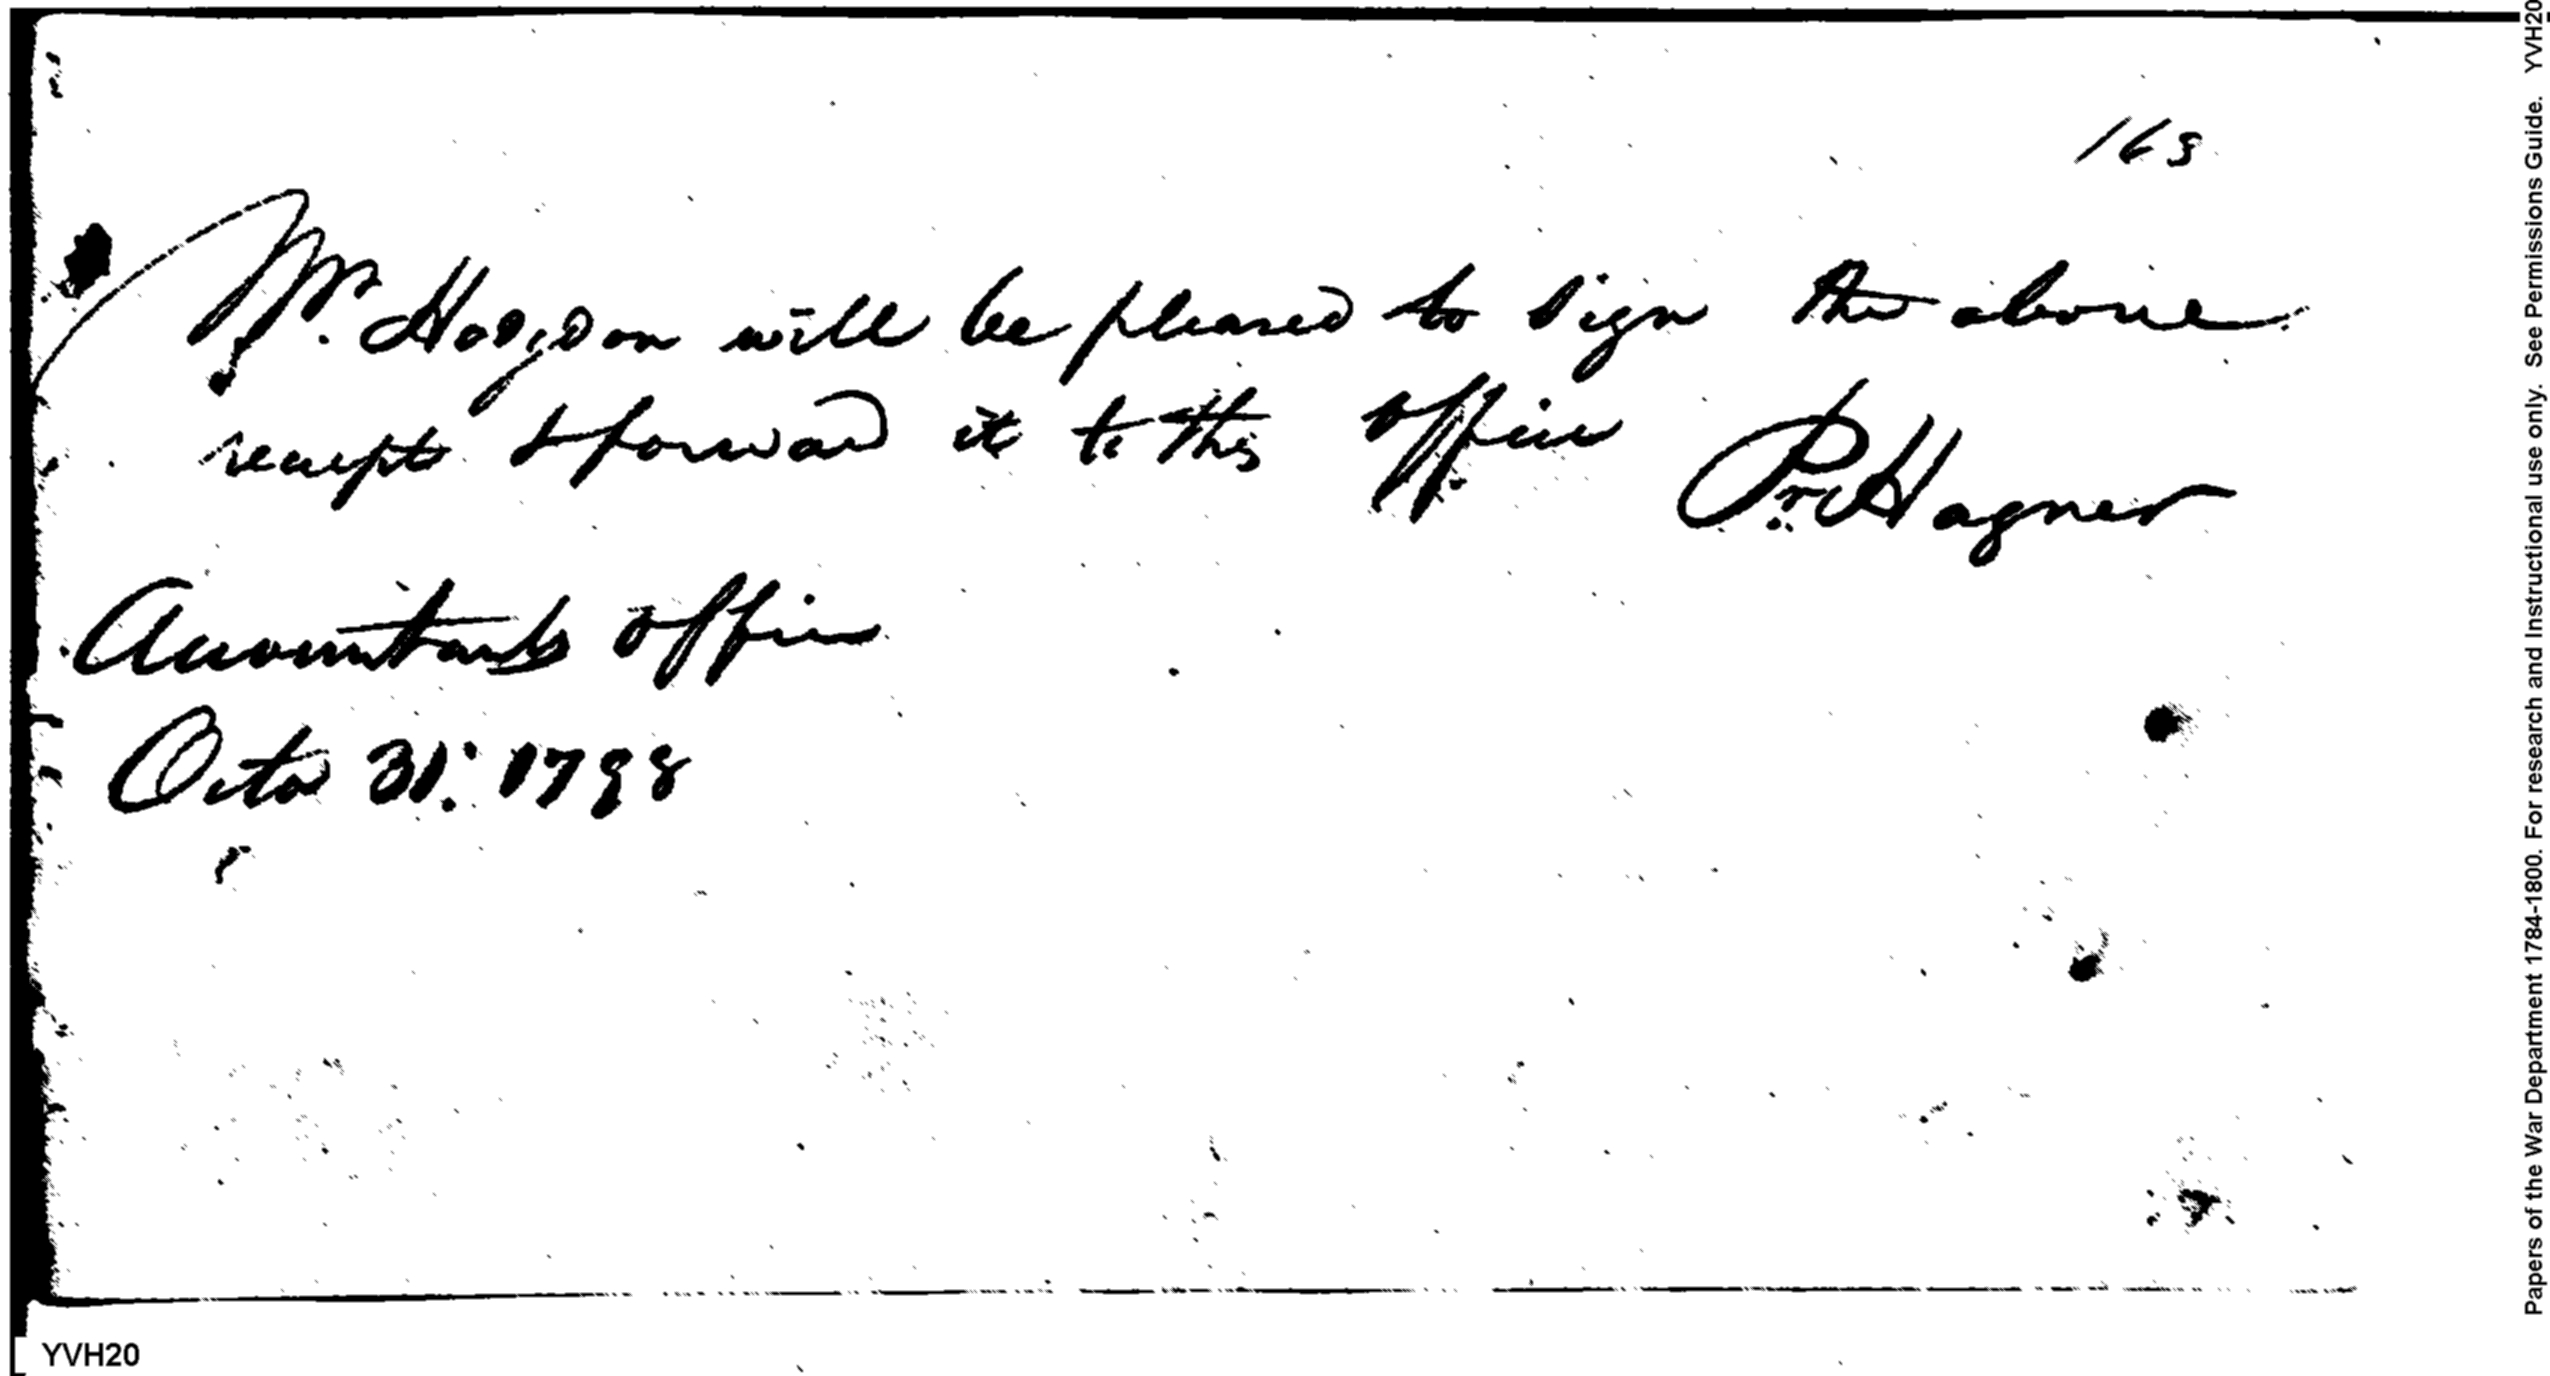 163
Mr. Hodgdon will be pleased to sign the above
receipt & forward it to this office Pr. Hagner
Accountants office
Octo 31: 1798
YVH20
Papers of the War Department 1784-1800. For research and Instructional use only. See Permissions Guide. YVH20